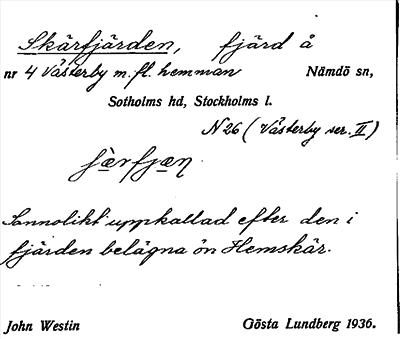 Skärfjärden, fjärd å
nr 4 Västerby m. fl. hemman Nämdö sn,
Sotholms hd, Stockholms l.
N 26 (Västerby ser. II)
Sannolikt uppkallad efter den i
fjärden belägna ön Hemskär.
John Westin Gösta Lundberg 1936.